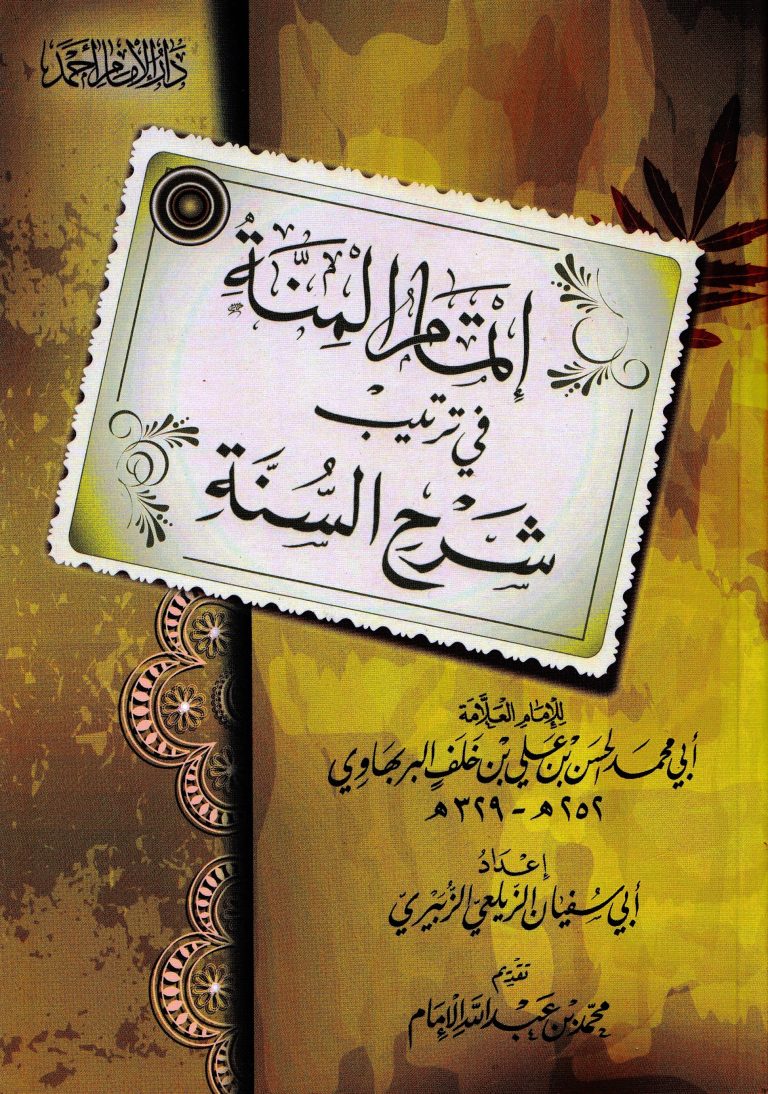 دَارُ الإِمَامِ أَحْمَدَ
إِتْمَامُ الْمِنَّةِ
فِي تَرْتِيبِ
شَرْحِ السُّنَّةِ
لِلإِمَامِ العَلَّامَة
أَبِي مُحَمَّد الحَسَن بْن عَلِي بْن خَلَفٍ البربهَاوِي
٢٥٢هـ - ٣٢٩هـ
إِعْدَادُ
أَبِي سُفْيَان الزَّيْلَعِيّ الزُّبَيْرِيّ
تَقْدِيم
مُحَمَّد بْن عَبْد اللهِ الإِمَام